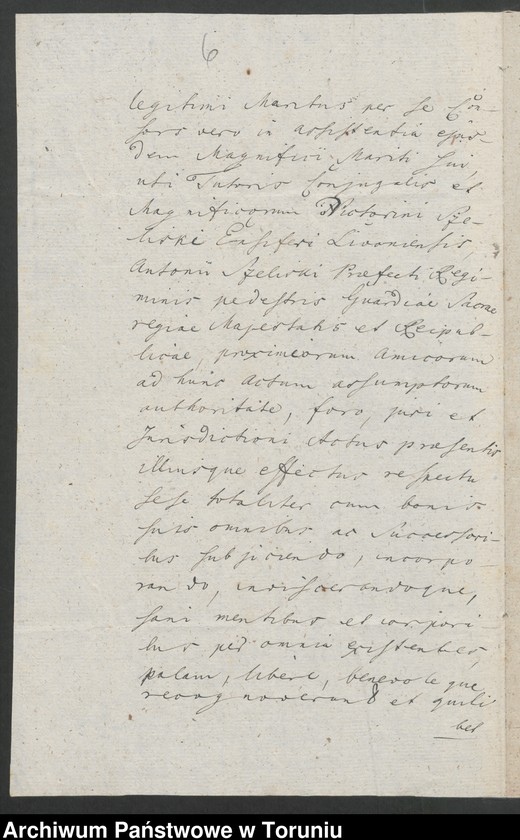 6
legitimi Maritus per se Con-
sors vero in assistentia ejus-
dem Magnifici Mariti sui,
uti Tutoris Conjugalis et
Magnificorum Victorini Sze-
liski Ensiferi Livoniensis,
Antonii Szeliski Præfecti Regi-
minis pedestris Guardiae Sacrae
regiae Majestatis et Reipub-
licae, proximiorum Amicorum
ad hunc Actum assumptorum
authoritate, foro, juri et
Jurisdictioni Actus præsentis
illiusque effectus respectu
sese totaliter cum bonis
suis omnibus ac Successori-
bus subjiciendo, incorpo-
rando, inviscerandoque,
sani mentibus et corpori
bus per omnia existentes,
palam, libere, benevoleque
recognoverunt et quili
bet
Archiwum Państwowe w Toruniu